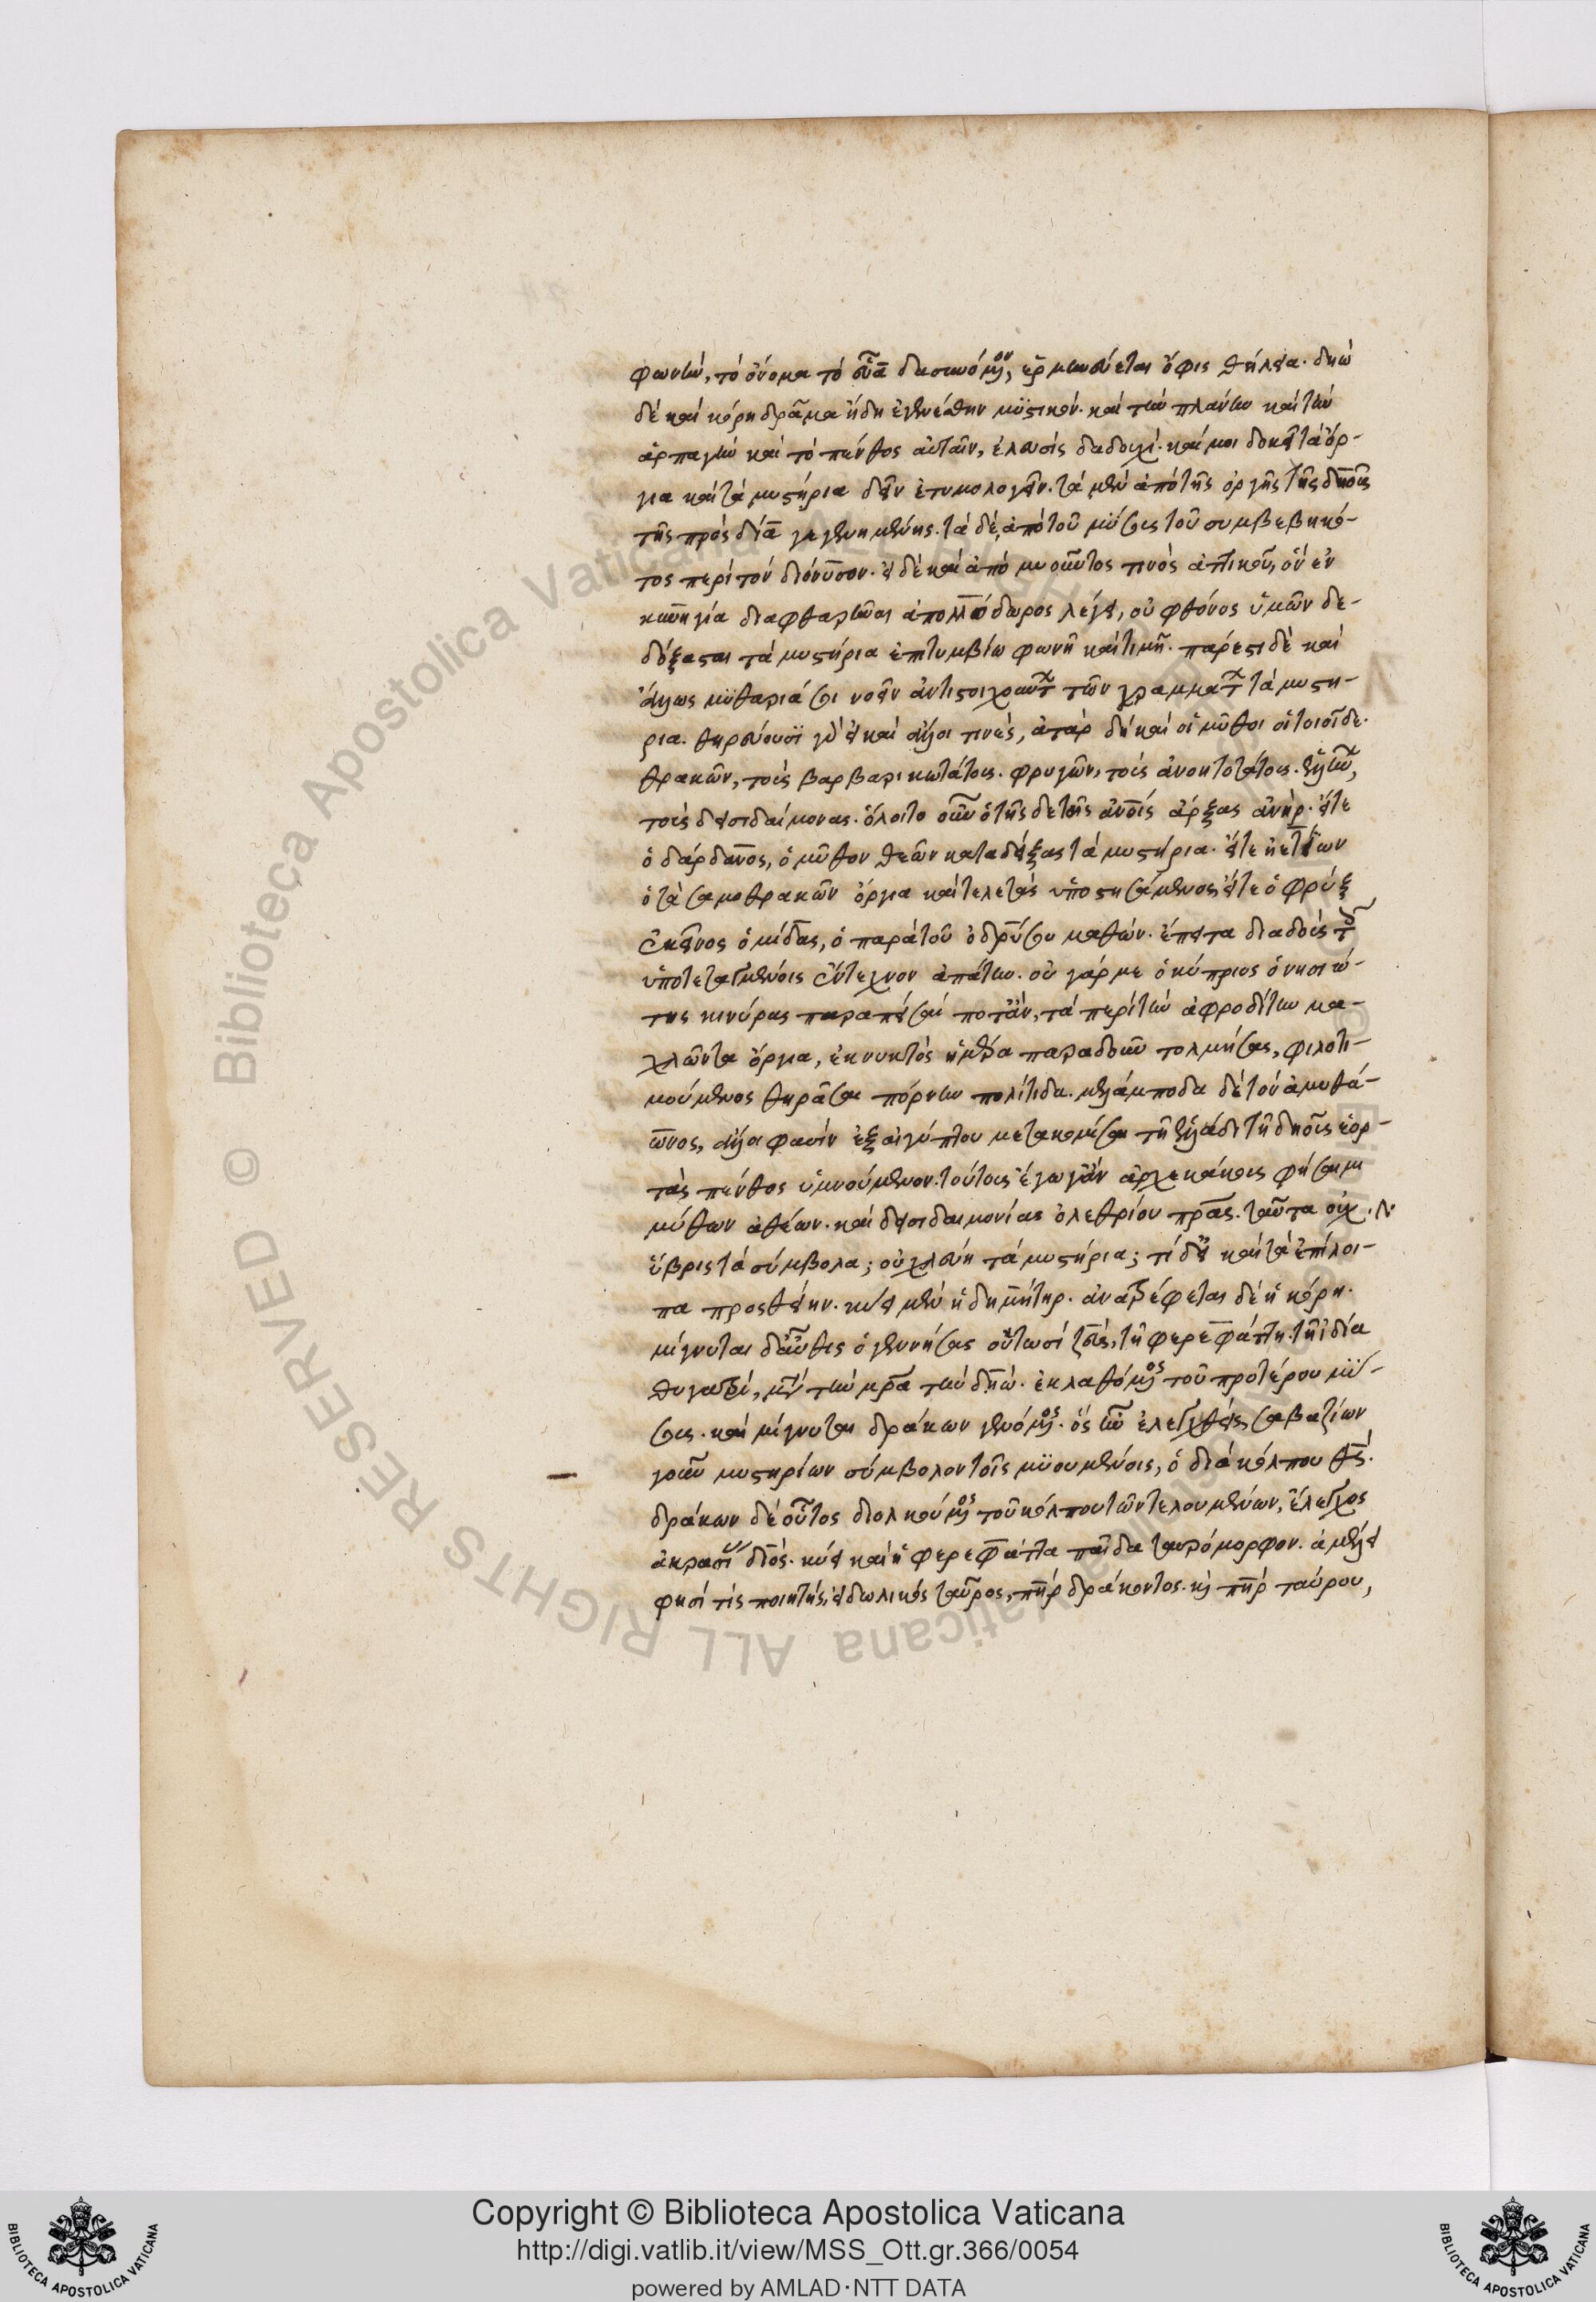 φωνὴν, τὸ ὄνομα τὸ εὔα δασυνόμενον, ἑρμηνεύεται ὄφις θήλεια. δηὼ
δὲ καὶ κόρη δρᾶμα ἤδη ἐγενέσθην μυστικόν. καὶ τὴν πλάνην καὶ τὴν
ἁρπαγὴν καὶ τὸ πένθος αὐταῖν, ἐλευσὶς δαδουχεῖ. καί μοι δοκεῖ τὰ ὄρ-
για καὶ τὰ μυστήρια δεῖν ἐτυμολογεῖν. τὰ μὲν ἀπὸ τῆς ὀργῆς τῆς δηοῦς
τῆς πρὸς δία γεγενημένης. τὰ δὲ, ἀπὸ τοῦ μύσους τοῦ συμβεβηκό-
τος περὶ τὸν διόνυσον. εἰ δὲ καὶ ἀπὸ μυοῦντος τινὸς ἀττικοῦ, ὃν ἐν
κυνηγία διαφθαρῆναι ἀπολλόδωρος λέγει, οὐ φθόνος ὑμῶν δε-
δόξασται τὰ μυστήρια ἐπιτυμβίω φωνῆ καὶ τιμῆ. πάρεστι δὲ καὶ
ἄλλως μυθάρια σοι νοεῖν ἀντιστοιχούντων τῶν γραμμάτων τὰ μυστή-
ρια. θηρεύουσι γὰρ εἰ καὶ ἄλλοι τινὲς, ἀτὰρ δὴ καὶ οἱ μῦθοι οἱ τοιοίδε.
θρακῶν, τοὺς βαρβαρικωτάτους. φρυγῶν, τοὺς ἀνοητοτάτους. ἑλλήνων,
τοὺς δεισιδαίμονας. ὄλοιτο οὖν ὁ τῆς δε τῆς ἀνοις ἄρξας ἀνὴρ. εἴτε
ὁ δάρδανος, ὁ μῦθον θεῶν καταδείξας τὰ μυστήρια. εἴτε ἠετίων
ὁ τὰ σαμοθρακῶν ὄργια καὶ τελετὰς ὑποστησάμενος, εἴτε ὁ φρὺξ
ἐκεῖνος ὁ μίδας, ὁ παρὰ τοῦ ὀδρύσου μαθών. ἔπειτα διαδοὺς τοῖς
ὑποτεταγμένοις ἔντεχνον ἀπάτην. οὐ γάρ με ὁ κύπριος ὁ νησιώ-
της κινύρας παραπείσαι ποτ᾽ ἂν, τὰ περὶ τὴν ἀφροδίτην μα-
χλῶντα ὄργια, ἐκ νυκτὸς ἡμέρα παραδοῦν τολμήσας, φιλοτι-
μούμενος θειᾶσαι πόρνην πολίτιδα. μελάμποδα δὲ τὸν ἀμυθά-
ωνος, ἄλλοι φασὶν ἐξ αἰγύπτου μετακομίσαι τῆ ἑλλάδι τῆ δηοῦς ἑορ-
τὰς πένθος ὑμνούμενον. τούτους ἔγωγ᾽ ἂν ἀρχεκάκους φήσαιμι
μύθων ἀθέων. καὶ δεισιδαιμονίας ὀλεθρίου πατέρας. ταῦτα οὐχ
ὕβρις τὰ σύμβολα; οὐ χλεύη τὰ μυστήρια; τί δ᾽ εἰ καὶ τὰ ἐπίλοι-
πα προσθείην. κυεῖ μὲν ἡ δημήτηρ. ἀνατρέφεται δὲ ἡ κόρη.
μίγνυται δ᾽ αὖθις ὁ γεννήσας οὑτωσὶ ζεὺς, τῆ φερεφάττη. τῆ ἰδία
θυγατρὶ, μετὰ τὴν μητέρα τὴν δηώ. ἐκλαθόμενος τοῦ προτέρου μύ-
σους. καὶ μίγνυται δράκων γενόμενος. ὃς ἦν ἐλεγχθείς, σαβαζίων
γοῦν μυστηρίων σύμβολον τοῖς μυουμένοις, ὁ διὰ κόλπου θεός.
δράκων δὲ οὗτος διολκούμενος τοῦ κόλπου τῶν τελουμένων, ἔλεγχος
ἀκρασίας διός. κυεῖ καὶ ἡ φερεφάττα παῖδα ταυρόμορφον. ἀμέλει
φησί τις ποιητής, εἰδωλικὸς ταῦρος, πατὴρ δράκοντος. καὶ πατὴρ ταύρου,
Copyright © Biblioteca Apostolica Vaticana
http://digi.vatlib.it/view/MSS_Ott.gr.366/0054
powered by AMLAD·NTT DATA